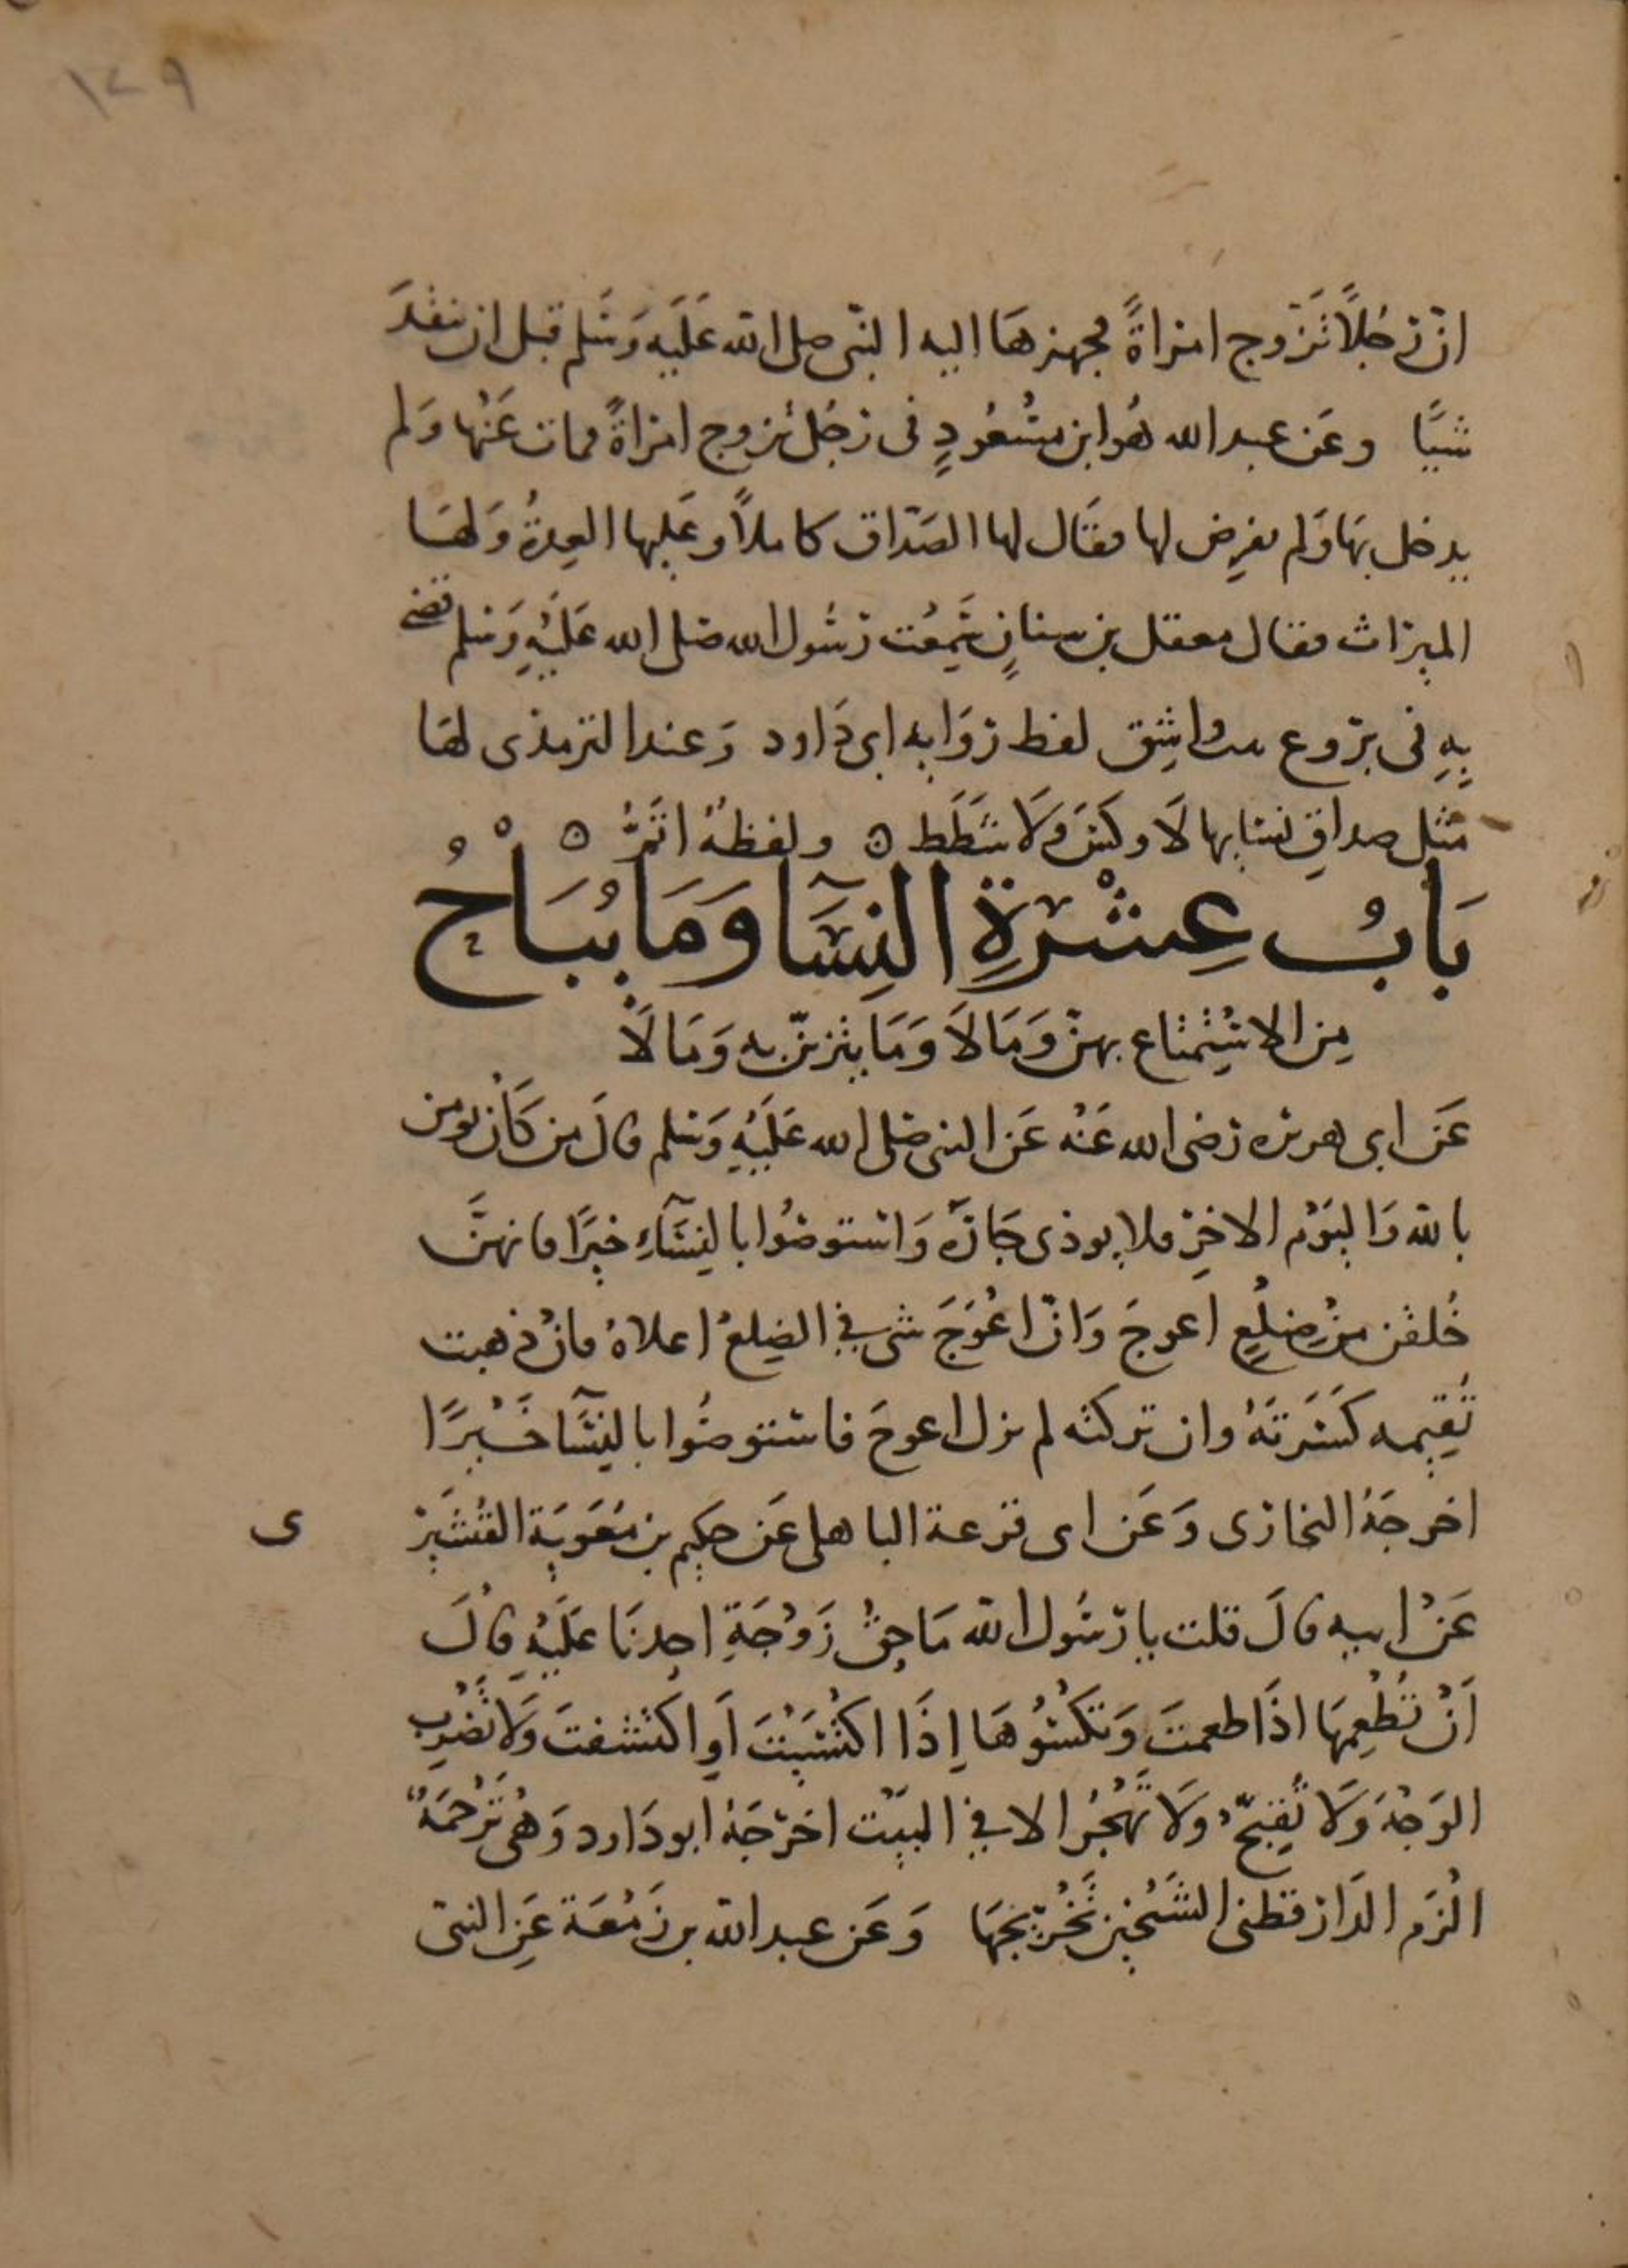 ١٢٩
انّ رَجُلًا تَزَوج امراةً فجهزهَا اليه النبى صلى الله عَلَيه وَسَلم قبل ان ينقدَ
شيًا وعَن عبد الله هُو ابن مسْعُودٍ فى رَجُل تزوج امراةً فمات عَنْها وَلم
يدخل بهَا وَلم يفرِض لها فقَال لها الصَدَاق كاملاً وعَليها العِدةُ وَلهَا
الميرَاث فقال معقل بن سنانٍ سَمِعْت رسُول الله صَلى الله عَلَيْهِ وَسَلم قضى
بِهِ فى بروع بنت واشِق لفظ رِوَايه ابى دَاود وَعند الترمذى لهَا
مثل صداقِ نسَايها لَا وكَسَ وَلَا شَطَط ٥ ولفظهُ اتَمُّ ٥
بَابُ عِشْرَةِ النِسَآ وَمَا يُبَاحُ
مِن الاسْتِمْتاع بهنّ وَمَا لَا وَمَا يتزيّن به وَمَا لَا
عَن ابى هريره رضى الله عَنْه عَن النبى صَلى الله عَلَيْهِ وَسَلم قالَ من كَانْ يومن
بالله وَاليَوْم الاخِرِ فلا يوذى جَارَهُ وَاستوصُوا بالنِسَآءِ خيرًا فانهنَّ
خُلقن مِنْ ضِلْعٍ اعوجَ وَانّ اعْوَجَ شى فِي الضِلعْ اعلاهُ فانْ ذهبت
تُقِيمه كَسَرتَهُ وان تركته لم يزل اعوجَ فاستوصُوا بالنِسَآ خَيْرًا
اخرجَهُ البخارى وَعَن ابى قزعة الباهلى عَن حكِيم بن مُعَوِيَة القُشَيْرِ
ى
عَنْ ابيه قالَ قلت يا رَسُول الله مَا حقُّ زَوْجَةِ احدِنَا عَلَيْهِ قالَ
اَنْ تُطْعِمهَا اذَا طعمتَ وَتكْسُوهَا إِذَا اكْتَسَيْتَ اَو اكتسفتَ وَلا تضْرِب
الوَجْهَ وَلَا تُقبِّحْ وَلَا تَهْجُر الا فِي البَيْت اخرَجَهُ ابو دَاود وَهْى تَرْجَمَةٌ
الْزَم الدَارقطنى الشَيْخَيْن تَخْريجهَا وَعَن عبد الله بن زَمْعَة عَنِ النبى